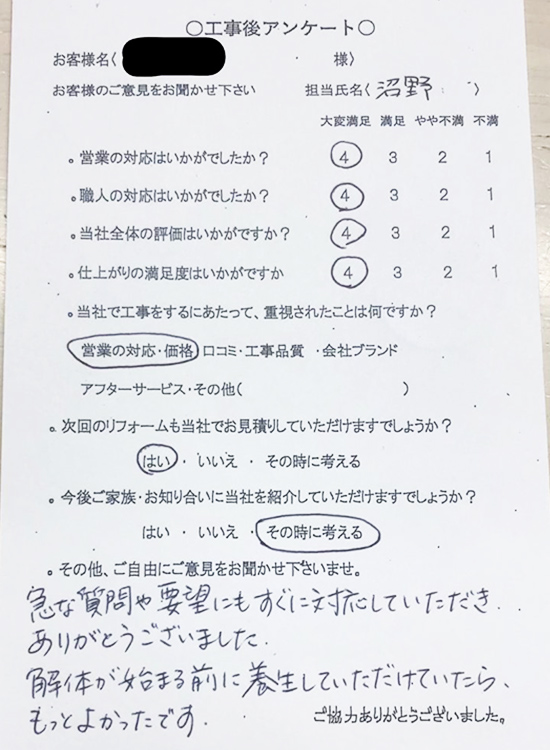 ○工事後アンケート○
お客様名( 様)
お客様のご意見をお聞かせ下さい 担当氏名( 沼野 )
大変満足 満足 やや不満 不満
。営業の対応はいかがでしたか? 4 3 2 1
。職人の対応はいかがでしたか? 4 3 2 1
。当社全体の評価はいかがですか? 4 3 2 1
。仕上がりの満足度はいかがですか 4 3 2 1
。当社で工事をするにあたって、重視されたことは何ですか?
営業の対応・価格 口コミ・工事品質 ・会社ブランド
アフターサービス・その他( )
。次回のリフォームも当社でお見積りしていただけますでしょうか?
はい ・ いいえ ・ その時に考える
。今後ご家族・お知り合いに当社を紹介していただけますでしょうか?
はい ・ いいえ ・ その時に考える
。その他、ご自由にご意見をお聞かせ下さいませ。
急な質問や要望にもすぐに対応していただき、
ありがとうございました。
解体が始まる前に養生していただけていたら、
もっとよかったです。
ご協力ありがとうございました。